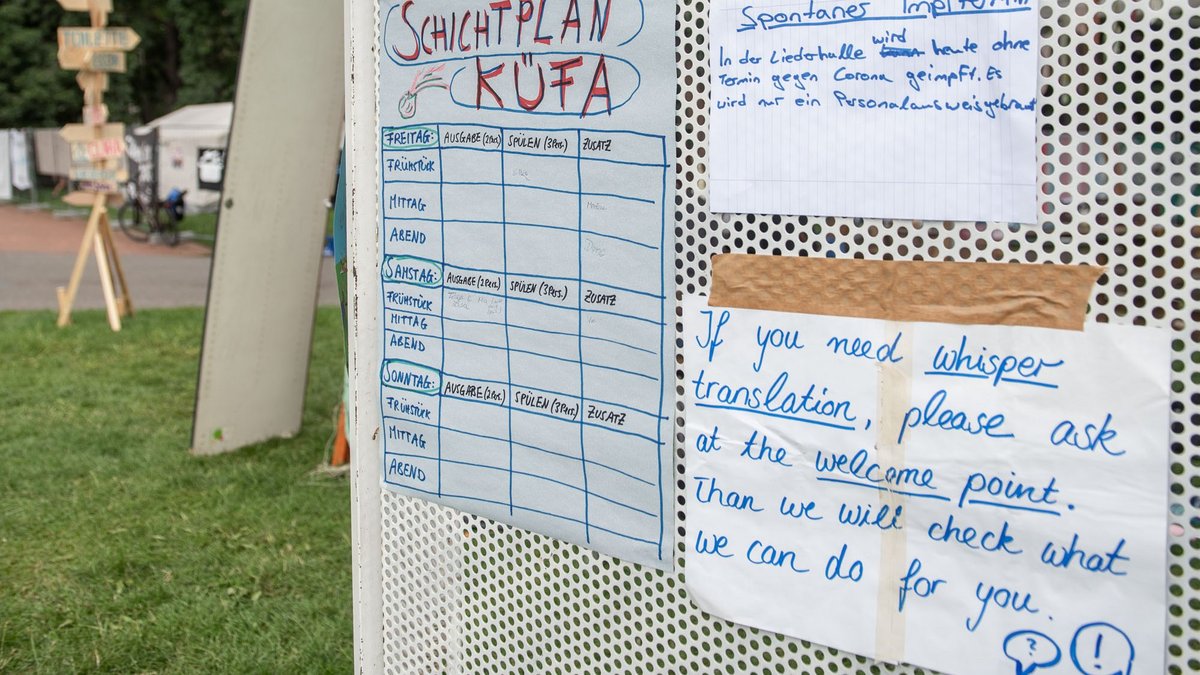 TOILETTE
SCHICHTPLAN
KÜFA
FREITAG: AUSGABE (2 Pers.) SPÜLEN (3 Pers.) ZUSATZ
FRÜHSTÜCK
MITTAG
ABEND
SAMSTAG: AUSGABE (2 Pers.) SPÜLEN (3 Pers.) ZUSATZ
FRÜHSTÜCK
MITTAG
ABEND
SONNTAG: AUSGABE (2 Pers.) SPÜLEN (3 Pers.) ZUSATZ
FRÜHSTÜCK
MITTAG
ABEND
Spontaner Impftermin
In der Liederhalle wird heute ohne
Termin gegen Corona geimpft. Es
wird nur ein Personalausweis gebraucht
If you need whisper
translation, please ask
at the welcome point.
Than we will check what
we can do for you.
? !